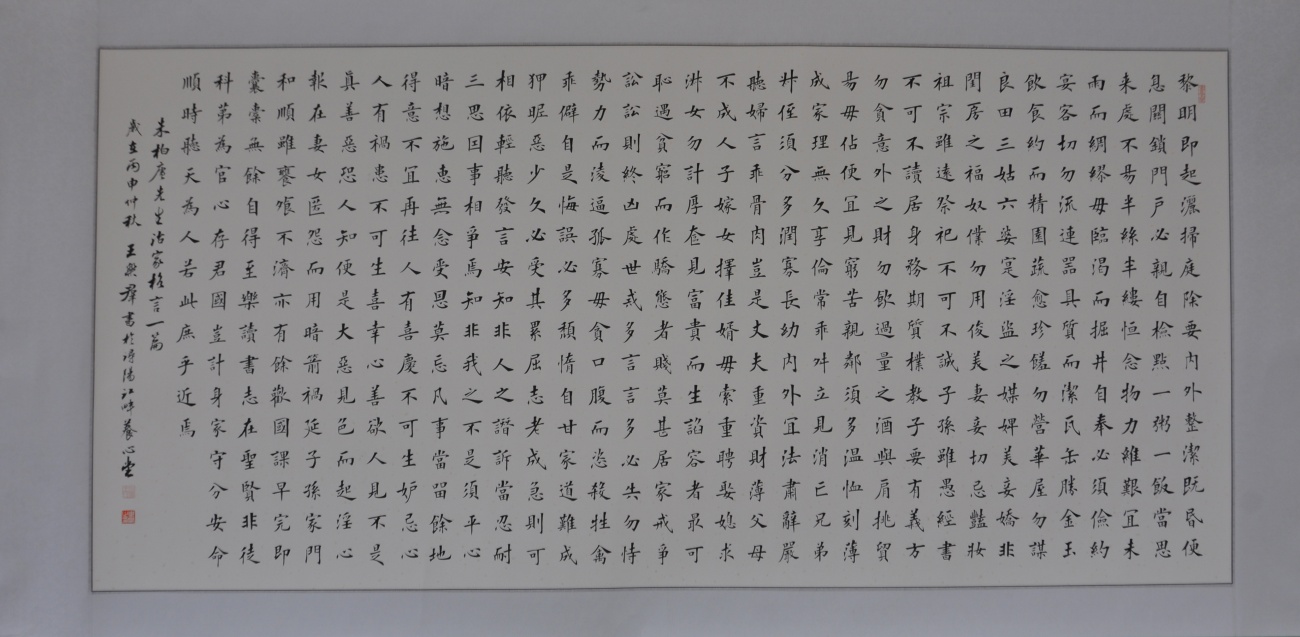 黎明即起灑掃庭除要内外整潔既昏便
息關鎖門戶必親自檢點一粥一飯當思
来處不易半絲半縷恒念物力維艱宜未
雨而綢繆毋臨渴而掘井自奉必須儉約
宴客切勿流連器具質而潔瓦缶勝金玉
飲食約而精園蔬愈珍饈勿營華屋勿謀
良田三姑六婆寔淫盗之媒婢美妾嬌非
閨房之福奴僕勿用俊美妻妾切忌豔妝
祖宗雖遠祭祀不可不誠子孫雖愚經書
不可不讀居身務期質樸教子要有義方
勿貪意外之財勿飲過量之酒與肩挑貿
易毋佔便宜見窮苦親鄰須多温恤刻薄
成家理無久享倫常乖舛立見消亡兄弟
叔侄須分多潤寡長幼内外宜法肅辭嚴
聽婦言乖骨肉豈是丈夫重資財薄父母
不成人子嫁女擇佳婿毋索重聘娶媳求
淑女勿計厚奩見富貴而生諂容者最可
恥過貧窮而作驕態者賤莫甚居家戒爭
訟訟則終凶處世戒多言言多必失勿恃
勢力而凌逼孤寡毋貪口腹而恣殺牲禽
乖僻自是悔誤必多頹惰自甘家道難成
狎昵惡少久必受其累屈志老成急則可
相依輕聽發言安知非人之譖訴當忍耐
三思因事相爭焉知非我之不是須平心
暗想施惠無念受恩莫忘凡事當留餘地
得意不宜再往人有喜慶不可生妒忌心
人有禍患不可生喜幸心善欲人見不是
真善惡恐人知便是大惡見色而起淫心
報在妻女匿怨而用暗箭禍延子孫家門
和順雖饔飧不濟亦有餘歡國課早完即
囊橐無餘自得至樂讀書志在聖賢非徒
科第為官心存君國豈計身家守分安命
順時聽天為人若此庶乎近焉
朱柏廬先生治家格言一篇
歲在丙申仲秋 王群書於潯陽江畔養心堂